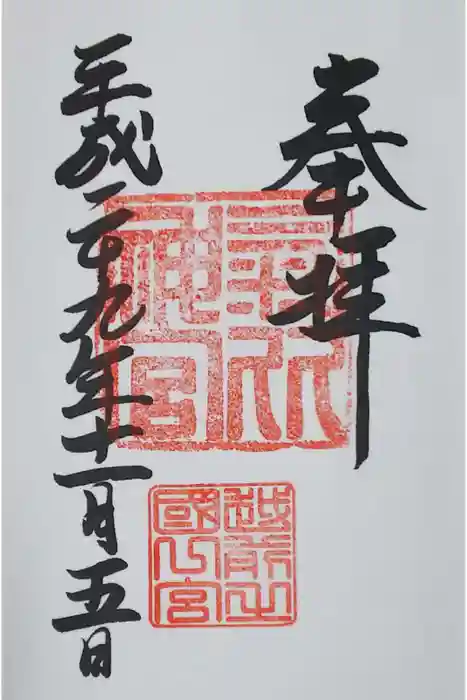 奉拝
神宮
越前之
國
宮
平成二十九年十一月五日